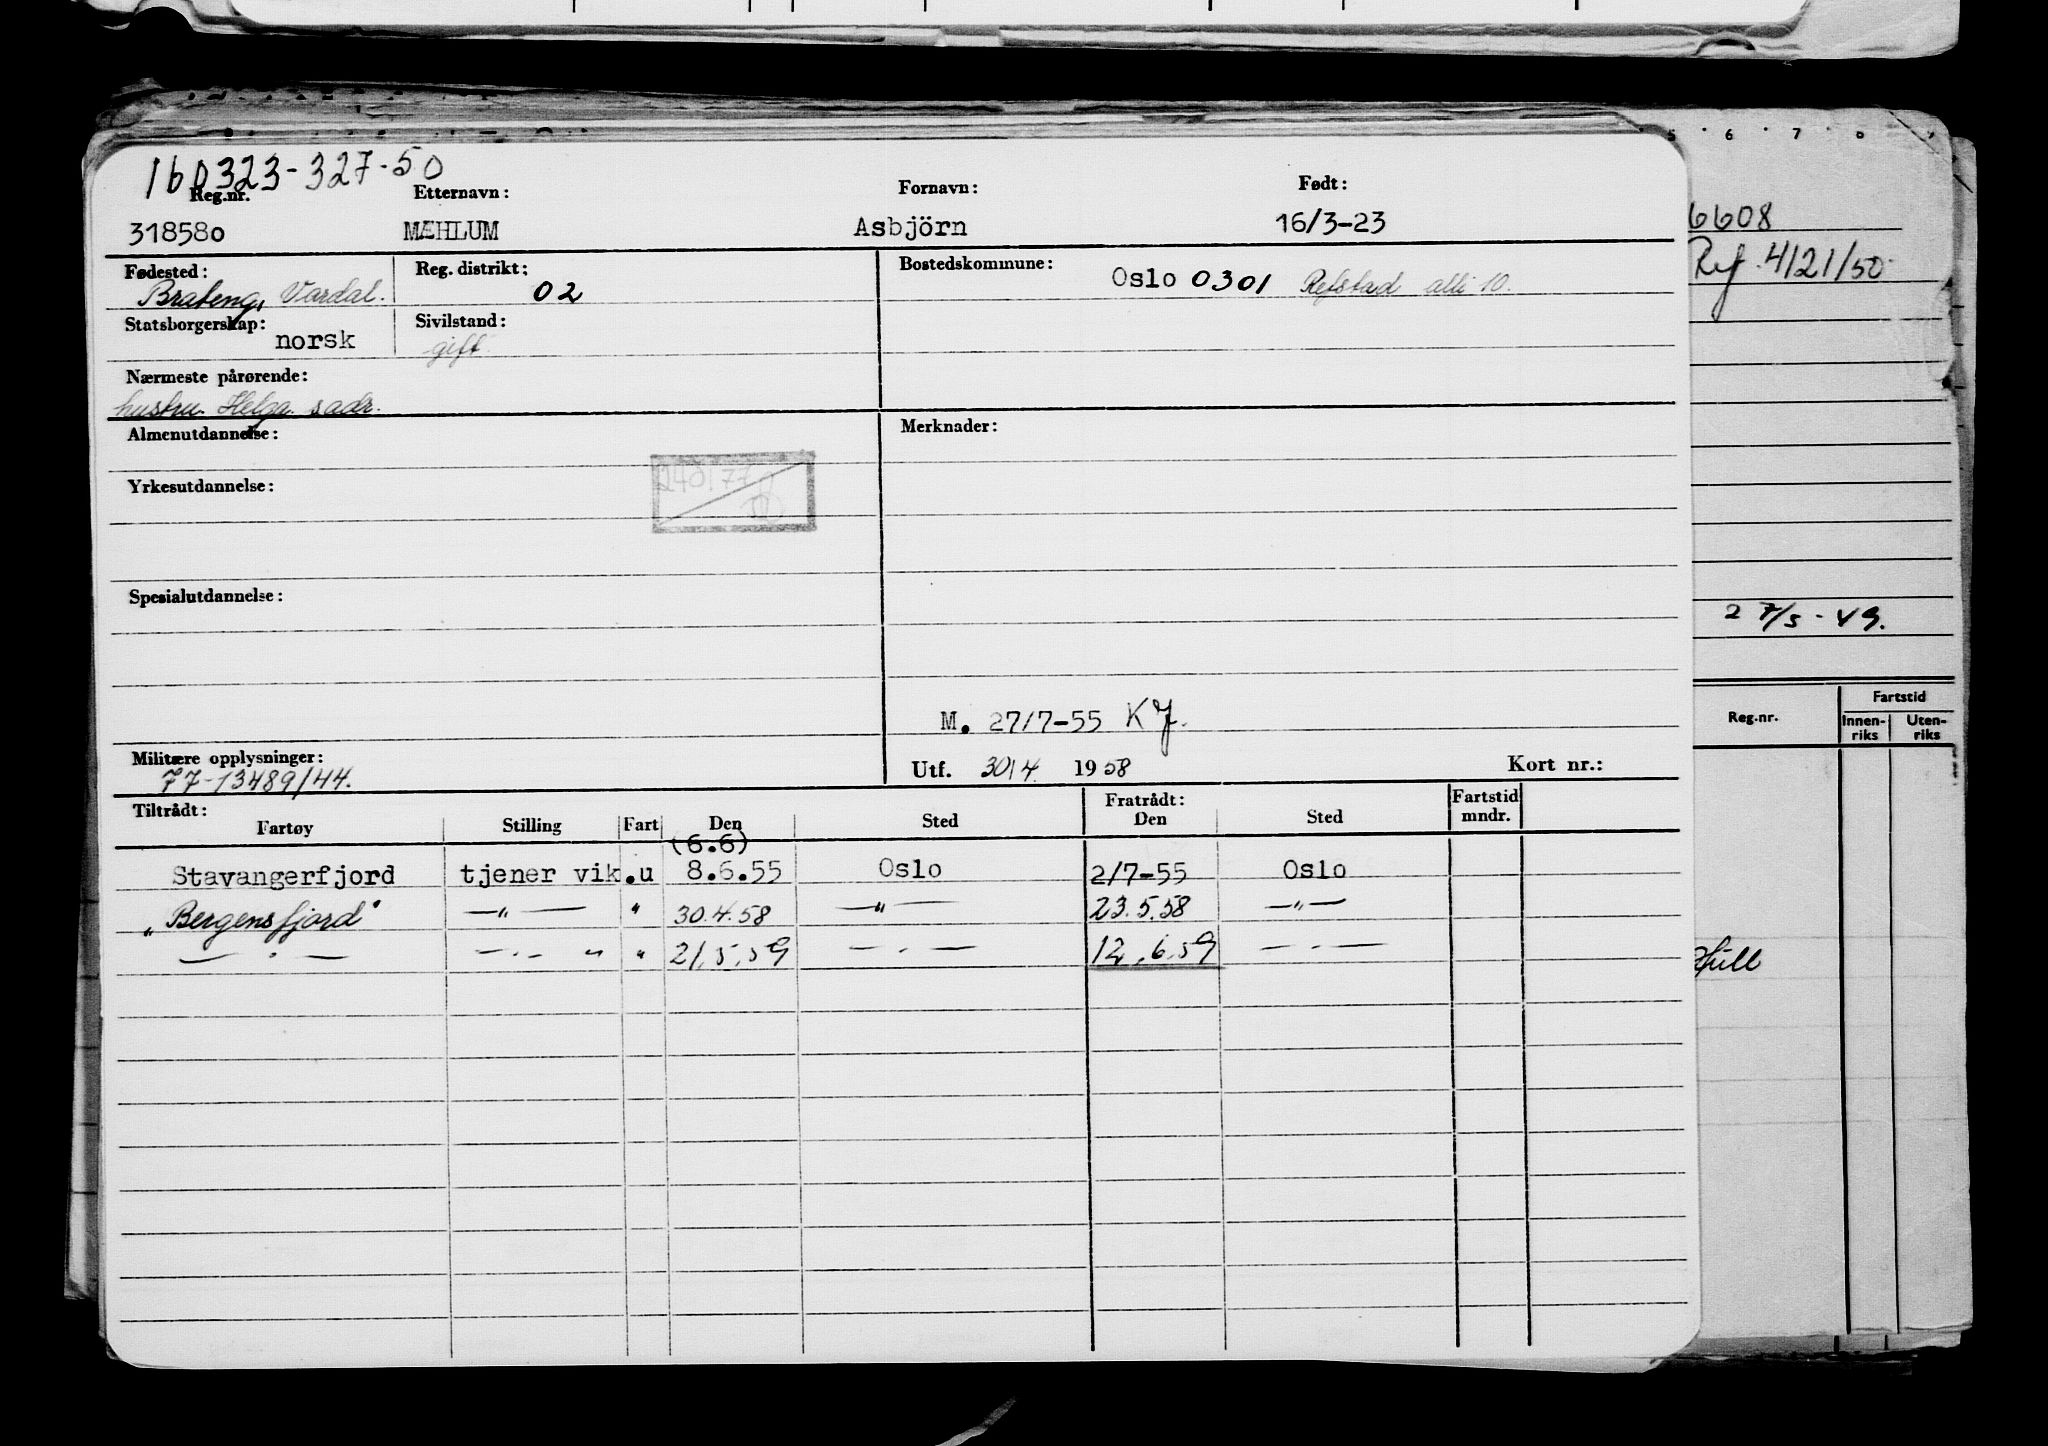 5 6 7 8
160323-327-50
Reg.nr. Etternavn: Fornavn: Født:
318580 MÆHLUM Asbjörn 16/3-23
6608
Ref. 4121/50
Fødested: Reg. distrikt: Bostedskommune:
Brateng, Vardal. 02 Oslo 0301 Refstad alle 10.
Statsborgerskap: Sivilstand:
norsk gift
Nærmeste pårørende:
hustru Helga sadr.
Almenutdannelse: Merknader:
Yrkesutdannelse:
240177
Spesialutdannelse:
27/5-49.
M. 27/7-55 KJ.
Militære opplysninger: Utf. 30/4 1958 Kort nr.:
77-13489/44.
Reg.nr. Fartstid
Innen-riks Uten-riks
Tiltrådt: Fratrådt: Fartstid
Fartøy Stilling Fart Den Sted Den Sted mndr.
(6.6)
Stavangerfjord tjener vik.u 8.6.55 Oslo 2/7-55 Oslo
"Bergensfjord" —"— " 30.4.58 —"— 23.5.58 —"—
— . — — . - " " 21.5.59 — . — 12.6.59 — . —